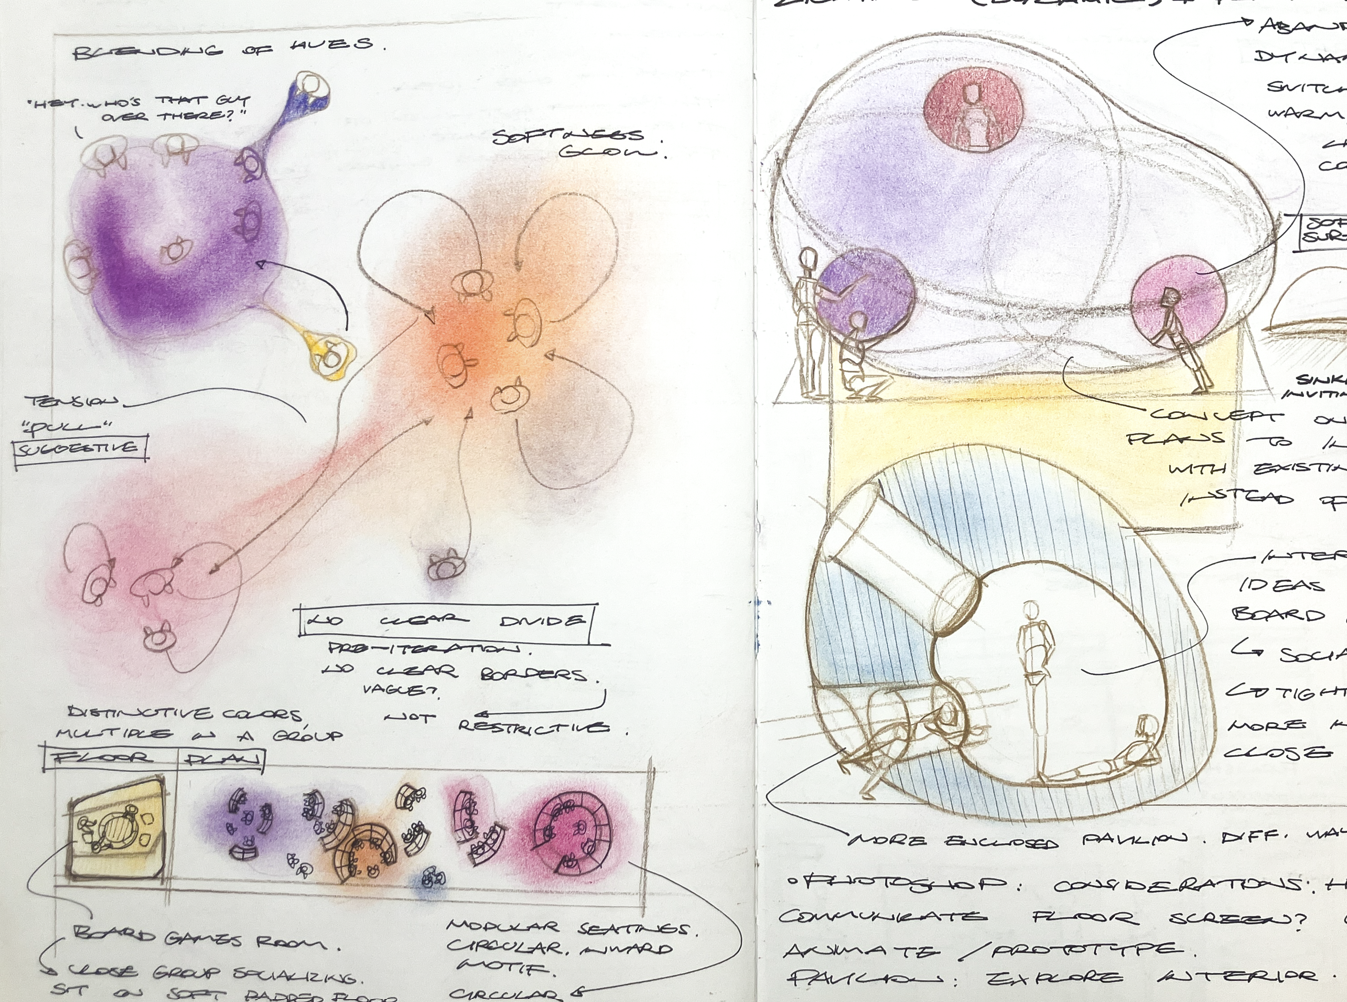 BLENDING OF HUES.
"HEY. WHO'S THAT GUY
OVER THERE?"
SOFTNESS.
GLOW.
TENSION
"PULL"
SUGGESTIVE
NO CLEAR DIVIDE
PRE-ITERATION.
NO CLEAR BORDERS.
VAGUE?
NOT RESTRICTIVE.
DISTINCTIVE COLORS,
MULTIPLE IN A GROUP
FLOOR PLAN
BOARD GAMES ROOM.
CLOSE GROUP SOCIALIZING.
SIT ON SOFT PADDED FLOOR
MODULAR SEATINGS.
CIRCULAR. INWARD
MOTIF.
CIRCULAR
ABAN
DYNA
SWITCH
WARM
CO
SOF
SUR
SINK
INVITIN
CONCEPT ON
PLANS TO IN
WITH EXISTIN
INSTEAD OF
INTER
IDEAS
BOARD
SOCIA
TIGHT
MORE
CLOSE
MORE ENCLOSED PAVILION. DIFF. WAY
PHOTOSHOP: CONSIDERATIONS: H
COMMUNICATE FLOOR SCREEN?
ANIMATE / PROTOTYPE.
PAVILION: EXPLORE INTERIOR.